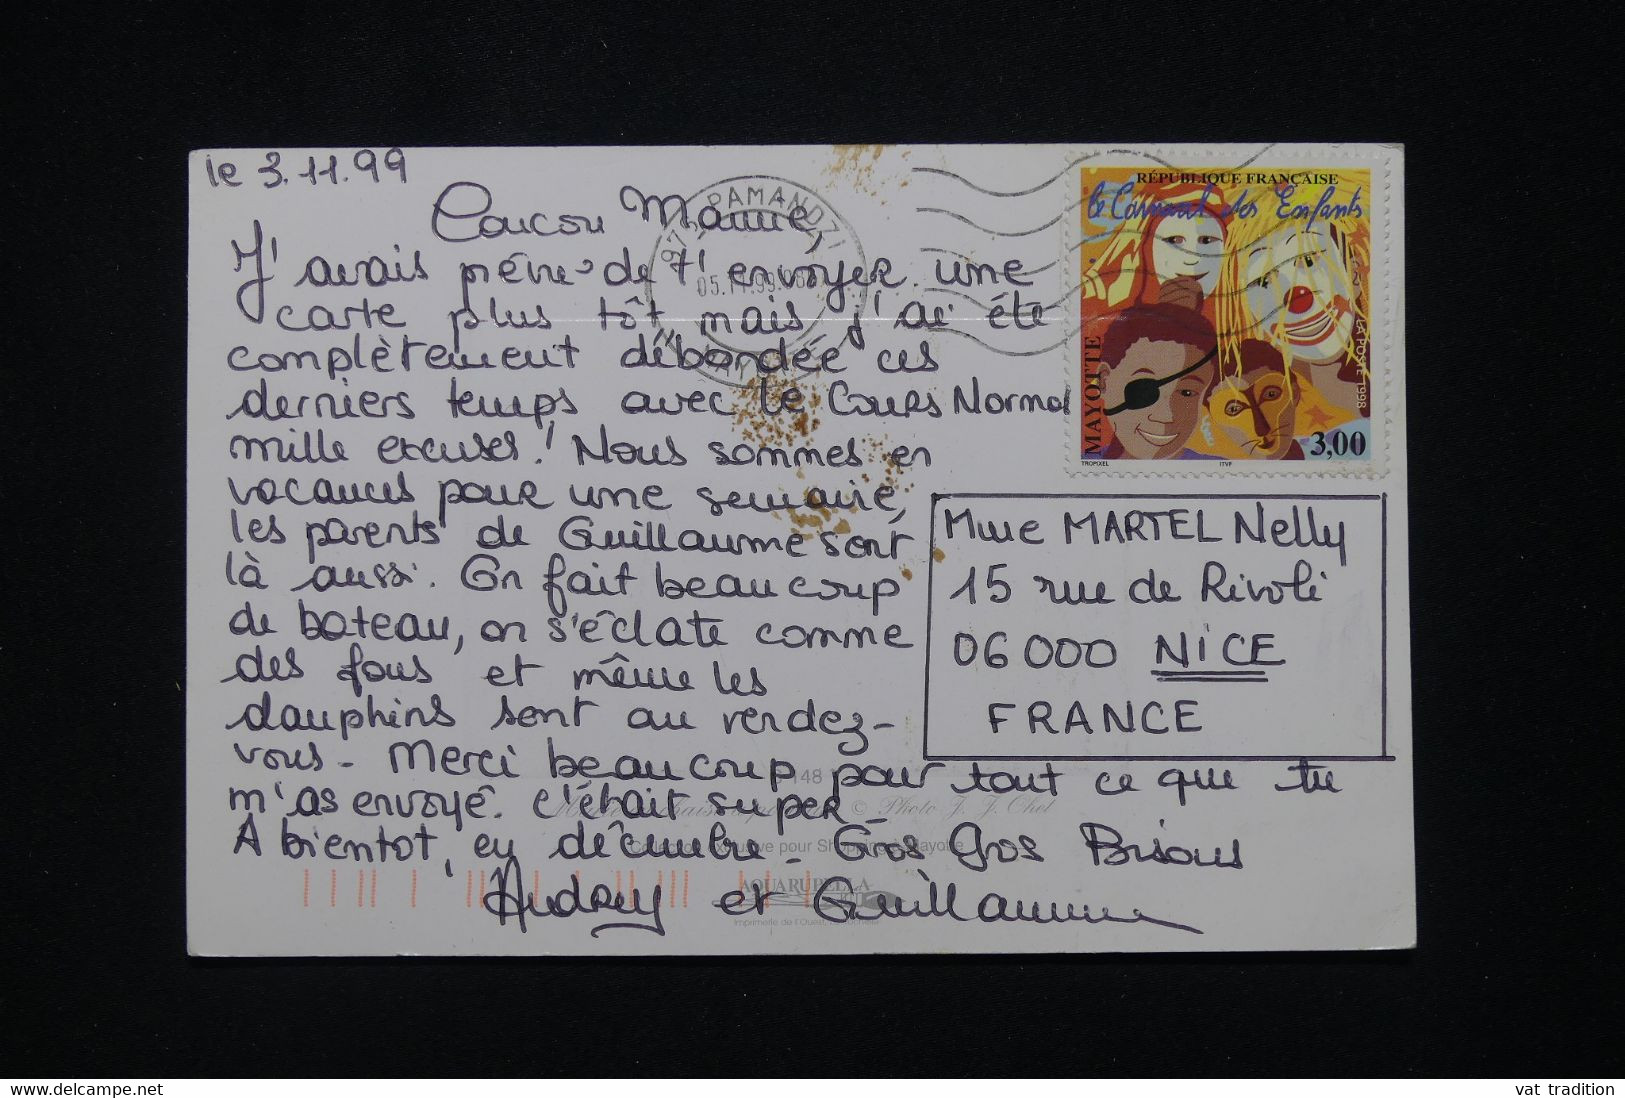 le 3.11.99
Coucou Mamie,
J'avais prévu de t'envoyer une
carte plus tôt, mais j'ai été
complètement débordée ces
derniers temps avec le Cours Normal
mille excuses! Nous sommes en
vacances pour une semaine,
les parents de Guillaume sont
là aussi. On fait beaucoup
de bateau, on s'éclate comme
des fous et même les
dauphins sont au rendez-
vous - Merci beaucoup pour tout ce que tu
m'as envoyé. C'était super -
A bientôt, en décembre - Gros Gros Bisous
Audrey et Guillaume
976 PAMANDZI
05.11.99
MAYOTTE
RÉPUBLIQUE FRANÇAISE
le Carnaval des Enfants
MAYOTTE
LA POSTE 1998
3,00
TROPIXEL
ITVF
Mme MARTEL Nelly
15 rue de Rivoli
06000 NICE
FRANCE
148
© Photo J. J. Chet
Collection exclusive pour Shopping Mayotte
AQUARUPELLA
Imprimerie de l'Ouest
delcampe.net
vat tradition